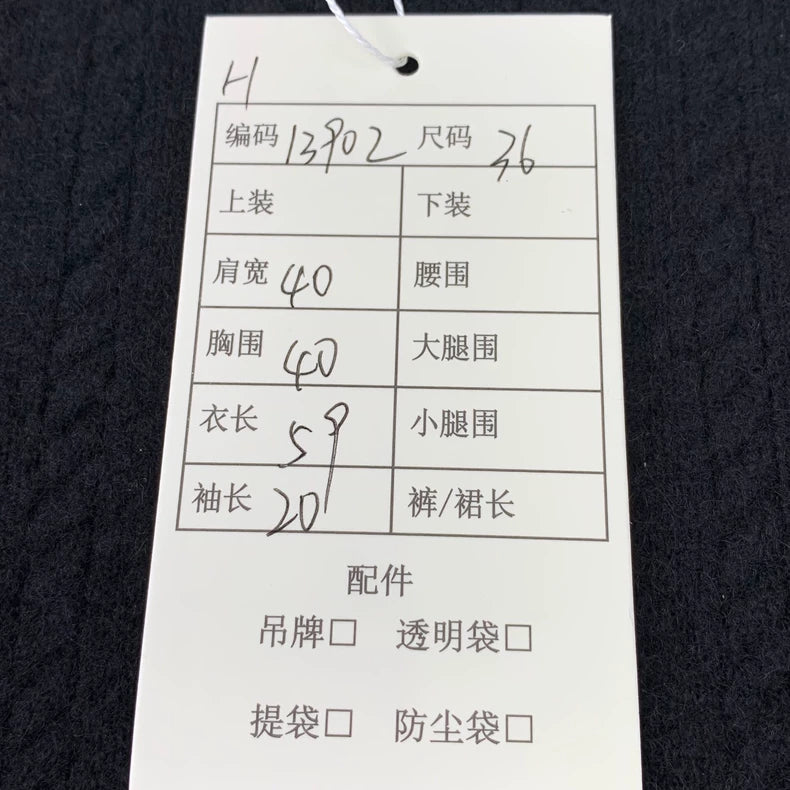 H
编码 13902 尺码 36
上装 下装
肩宽 40 腰围
胸围 40 大腿围
衣长 59 小腿围
袖长 20 裤/裙长
配件
吊牌□ 透明袋□
提袋□ 防尘袋□